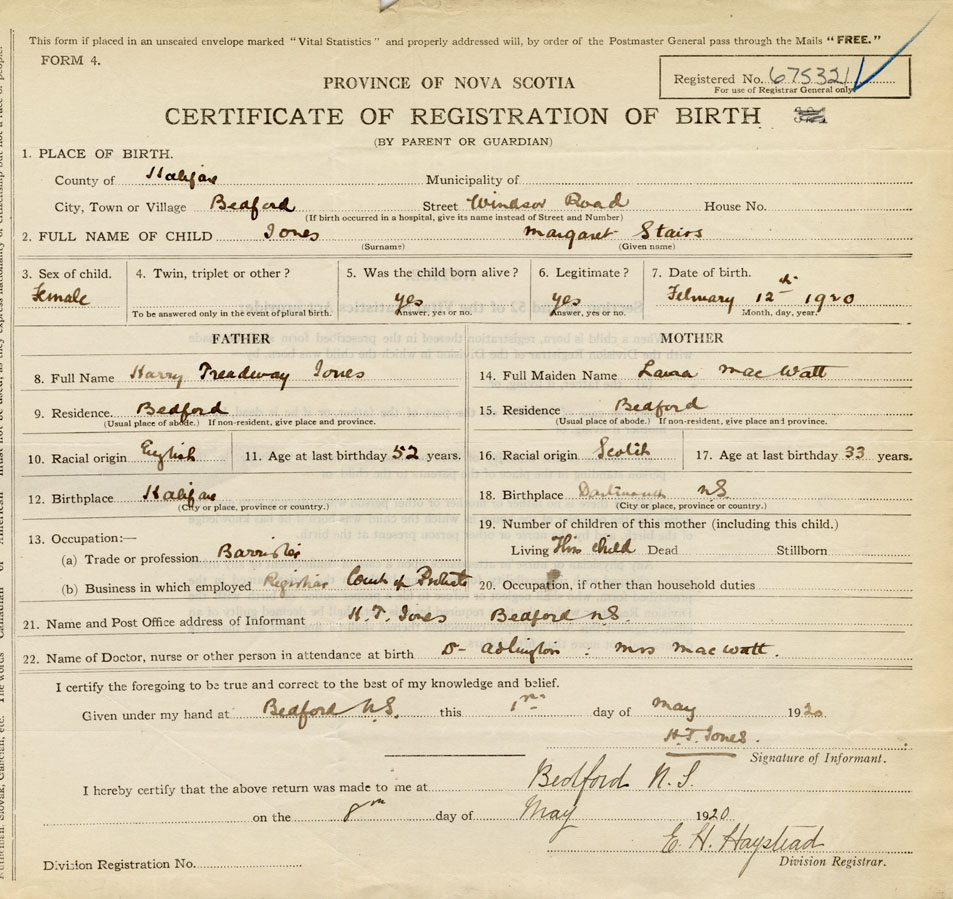 This form if placed in an unsealed envelope marked "Vital Statistics" and properly addressed will, by order of the Postmaster General pass through the Mails "FREE."
FORM 4.
Registered No. 675321
For use of Registrar General only
PROVINCE OF NOVA SCOTIA
CERTIFICATE OF REGISTRATION OF BIRTH
(BY PARENT OR GUARDIAN)
1. PLACE OF BIRTH.
County of Halifax Municipality of
City, Town or Village Bedford Street Windsor Road House No.
(If birth occurred in a hospital, give its name instead of Street and Number)
2. FULL NAME OF CHILD Jones Margaret Stairs
(Surname) (Given name)
3. Sex of child. 4. Twin, triplet or other? 5. Was the child born alive? 6. Legitimate? 7. Date of birth.
Female yes yes February 12th 1920
To be answered only in the event of plural birth. Answer, yes or no. Answer, yes or no. Month, day, year.
FATHER MOTHER
8. Full Name Harry Treadway Jones
14. Full Maiden Name Laura MacWatt
9. Residence. Bedford
(Usual place of abode.) If non-resident, give place and province.
15. Residence Bedford
(Usual place of abode.) If non-resident, give place and province.
10. Racial origin English 11. Age at last birthday 52 years.
16. Racial origin Scotch 17. Age at last birthday 33 years.
12. Birthplace Halifax
(City or place, province or country.)
18. Birthplace Dartmouth NS
(City or place, province or country.)
13. Occupation:—
(a) Trade or profession Barrister
(b) Business in which employed Registrar Court of Probate
19. Number of children of this mother (including this child.)
Living This child Dead Stillborn
20. Occupation, if other than household duties
21. Name and Post Office address of Informant H. T. Jones Bedford N.S.
22. Name of Doctor, nurse or other person in attendance at birth Dr Adlington. Mrs MacWatt.
I certify the foregoing to be true and correct to the best of my knowledge and belief.
Given under my hand at Bedford N.S. this day of May 1920.
H.T. Jones.
Signature of Informant.
I hereby certify that the above return was made to me at Bedford N.S.
on the 8th day of May 1920
E. H. Haystead
Division Registrar.
Division Registration No.